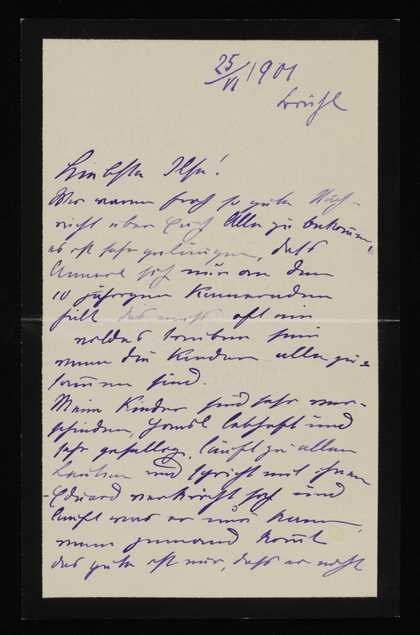 25/VI 1901
Brühl
Liebste Ilse!
Wir waren froh so gute Nach-
richt über Euch Alle zu bekommen,
es ist sehr gelungen, dass
sich nur an den
10 jährigen Kameraden
hält das muss oft ein
wildes treiben sein
wenn die Kinder alle zu-
sammen sind.
Meine Kinder sind sehr ver-
schieden, lebhaft und
sehr gefällig, läuft zu allen
Leuten und spricht mit ihnen
Eduard verkriecht sich und
läuft was er nur kann,
wenn jemand kommt
das gute ist nur, dass er nicht